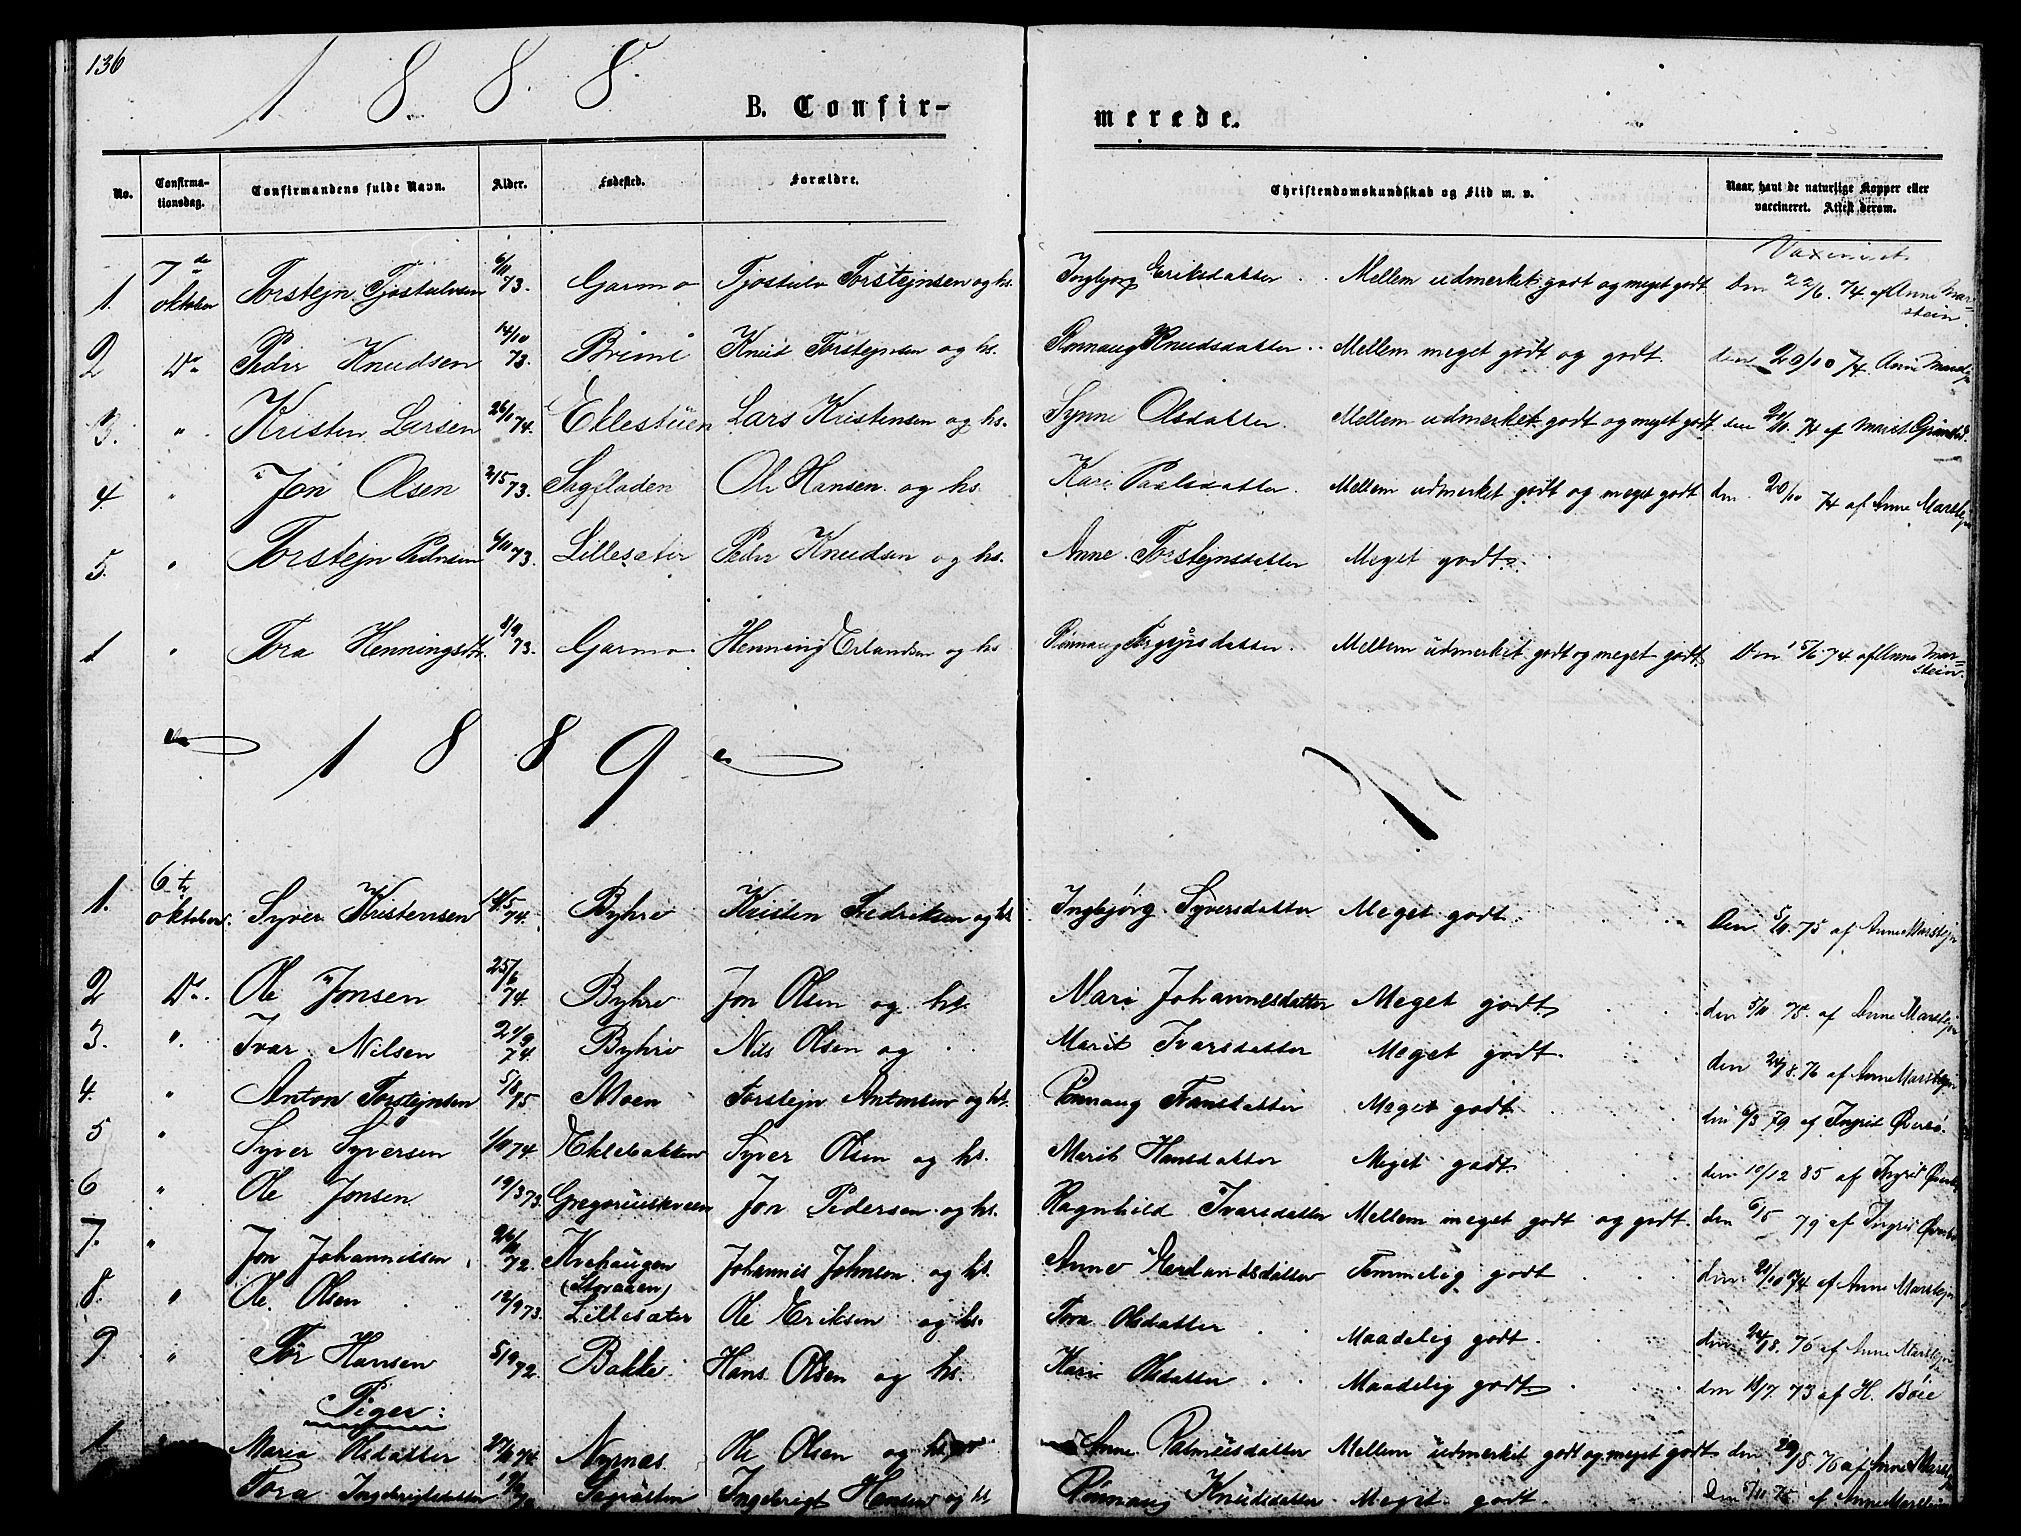 136
1 8 8 8
B. Confir-
merede.
No.
Confirma-
tionsdag.
Confirmandens fulde Navn.
Alder.
Fødested.
Forældre.
Christendomskundskab og Flid m. v.
Naar, havt de naturlige Kopper eller
vaccineret. Attest derom.
1. 7de oktober Torstejn Tjostulvsen 6/11 73. Garmo Tjostulv Torstejnsen og hs. Ingbjorg Eriksdatter .. Mellem udmerket godt og meget godt Den 22/6. 74 af Anne Mar=
stein.
2 Do Peder Knudsen 14/10 73. Brimi Knut Torstejnsen og hs. Rønnaug Knudsdatter .. Mellem meget godt og godt den 20/10 74. Anne
3. " Kristen Larsen 26/1 74. Eklestuen Lars Kristensen og hs. Synne Olsdatter. Mellem udmerket godt og meget godt den 74 af Marit
4. " Jon Olsen 2/5 73. Sagfladen Ole Hansen og hs. Kari Paalsdatter. Mellem udmerket godt og meget godt den 20/10 74 af Anne Marstejn
5. " Torstejn Pedersen 6/11 73. Lillesæter Peder Knudsen og hs. Anne Torstejnsdatter Meget godt.
1 " Tora Henningsdt. 8/9 73. Garmo Henning Erlandsen og hs Rønnaug Mellem udmerket godt og meget godt Den 15/6 74. af Anne Mar=
stein.
1 8 8 9
1. 6te oktober. Syver Kristensen 18/5 74. Byhre Kristen Fredriksen og hs Ingbjørg Syversdatter Meget godt Den 5/11. 75 af Anne Marstejn
2 Do. Ole Jonsen 25/6 74 Byhre Jon Olsen og hs. Mari Johannesdatter Meget godt den 5/11 75. af Anne Marstejn
3. ". Ivar Nilsen 21/9 74. Byhre Nils Olsen og Marit Ivarsdatter Meget godt. den 24/8. 76 af Anne Marstejn
4. " Anton Torstejnsen 5/8 75 Moen Torstejn Antonsen og hs. Rønnaug Meget godt. den 6/3 79 af Ingrit Øversø.
5 " Syver Syversen 1/11 74. Eklebakken Syver Olsen og hs. Marit Hansdatter Meget godt den 10/12 85 af Ingrit
6 " Ole Jonsen 19/3 73. Gregoriuskveen Jon Pedersen og hs. Ragnhild Ivarsdatter Mellem meget godt og godt. den 6/5 79 af Ingrit
7. " Jon Johannessen 26/11 72. Kvehaugen Johannes Johnsen og hs. Anne Erlandsdatter Temmelig godt den 21/10 74 af Anne Marstejn
8. " Ole Olsen 12/9 73 (Storaaen)
Lillesæter Ole Eriksen og hs. Tora Olsdatter .. Maadelig godt. den 24/8. 75 af Anne Marstejn
9. " Tor Hansen 5/9 72. Bakke Hans Olsen og hs. Kari Olsdatter .. Maadelig godt. den 19/7. 73 af H. Bøie
Piger:
1 Maria Olsdatter 27/11 74. Nyrnes Ole Olsen og Anne Rasmusdatter Mellem udmerket godt og meget godt den 29/8 76 af Anne Marstejn
Tora Ingebrigtsdatter Ingebrigt Hansen og hs Rønnaug Knudsdatter Meget godt. Den 5/11 75 af Anne Marstein